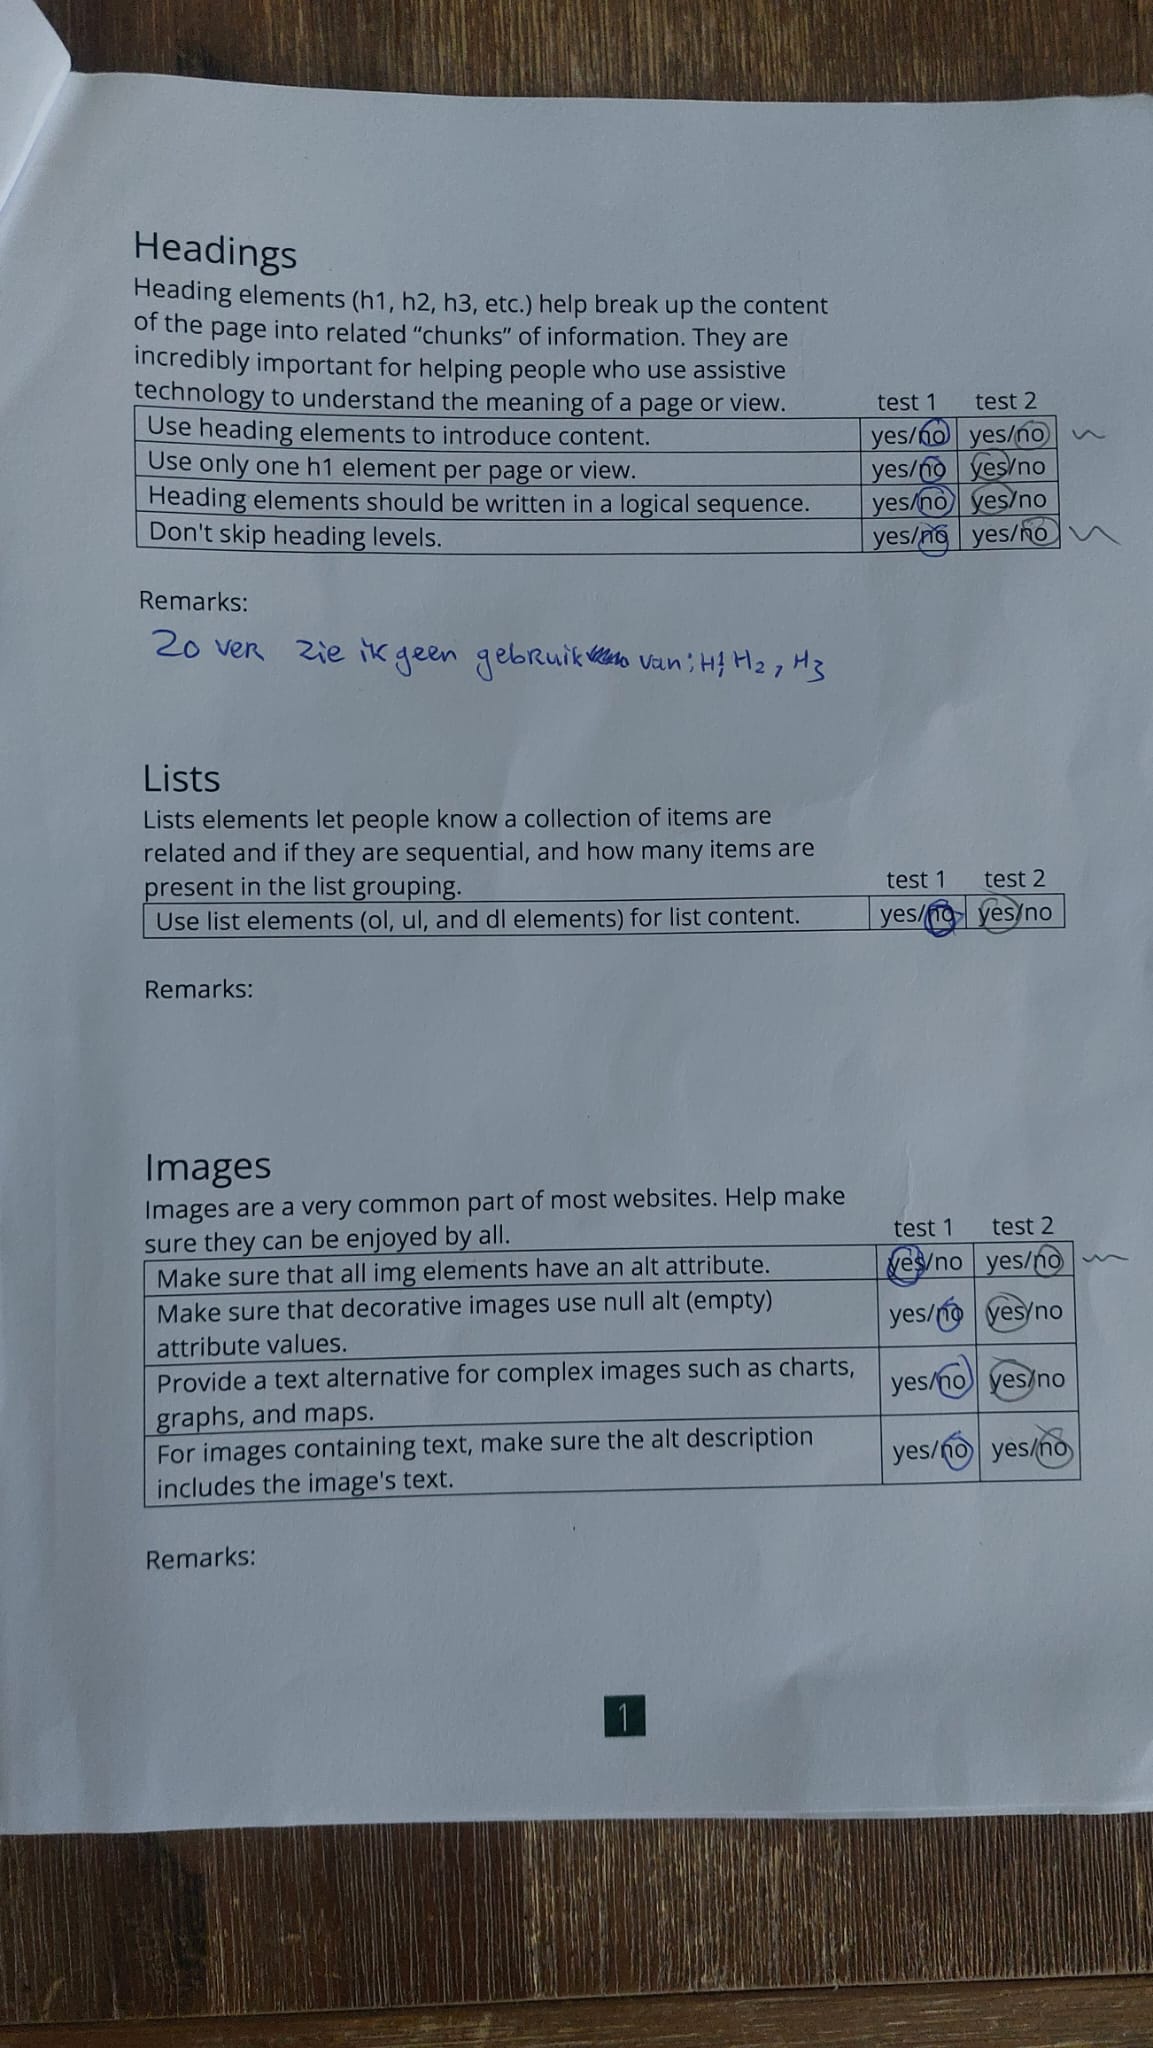 Headings
Heading elements (h1, h2, h3, etc.) help break up the content
of the page into related “chunks” of information. They are
incredibly important for helping people who use assistive
technology to understand the meaning of a page or view. test 1 test 2
Use heading elements to introduce content. yes/no yes/no
Use only one h1 element per page or view. yes/no yes/no
Heading elements should be written in a logical sequence. yes/no yes/no
Don't skip heading levels. yes/no yes/no
Remarks:
Zo ver zie ik geen gebruik van: H1, H2, H3
Lists
Lists elements let people know a collection of items are
related and if they are sequential, and how many items are
present in the list grouping. test 1 test 2
Use list elements (ol, ul, and dl elements) for list content. yes/no yes/no
Remarks:
Images
Images are a very common part of most websites. Help make
sure they can be enjoyed by all. test 1 test 2
Make sure that all img elements have an alt attribute. yes/no yes/no
Make sure that decorative images use null alt (empty)
attribute values. yes/no yes/no
Provide a text alternative for complex images such as charts,
graphs, and maps. yes/no yes/no
For images containing text, make sure the alt description
includes the image's text. yes/no yes/no
Remarks:
1